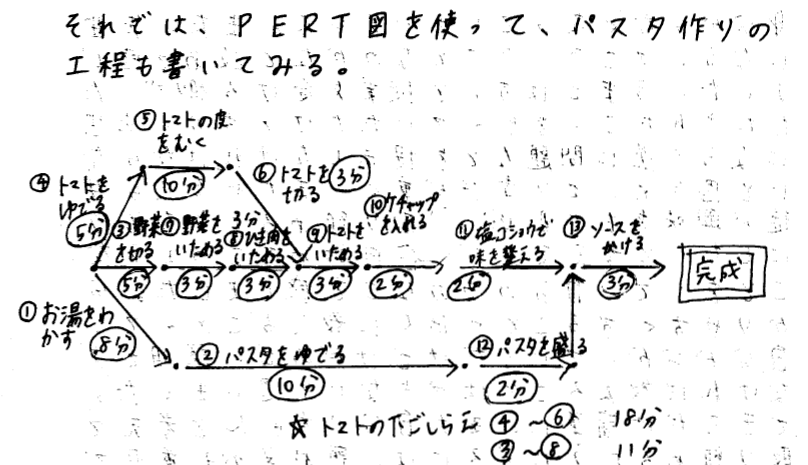 それでは、PERT図を使って、パスタ作りの
工程も書いてみる。
⑤トマトの皮
をむく
10分
④トマトを
ゆでる
5分
⑥トマトを
切る
3分
③野菜
を切る
5分
⑦野菜を
いためる
3分
3分
⑧ひき肉を
いためる
3分
⑨トマトを
いためる
3分
⑩ケチャップ
を入れる
2分
⑪塩コショウで
味を整える
2分
⑬ソースを
かける
3分
完成
①お湯をわ
かす
8分
②パスタをゆでる
10分
⑫パスタを盛る
2分
☆トマトの下ごしらえ ④~⑥ 18分
③~⑧ 11分